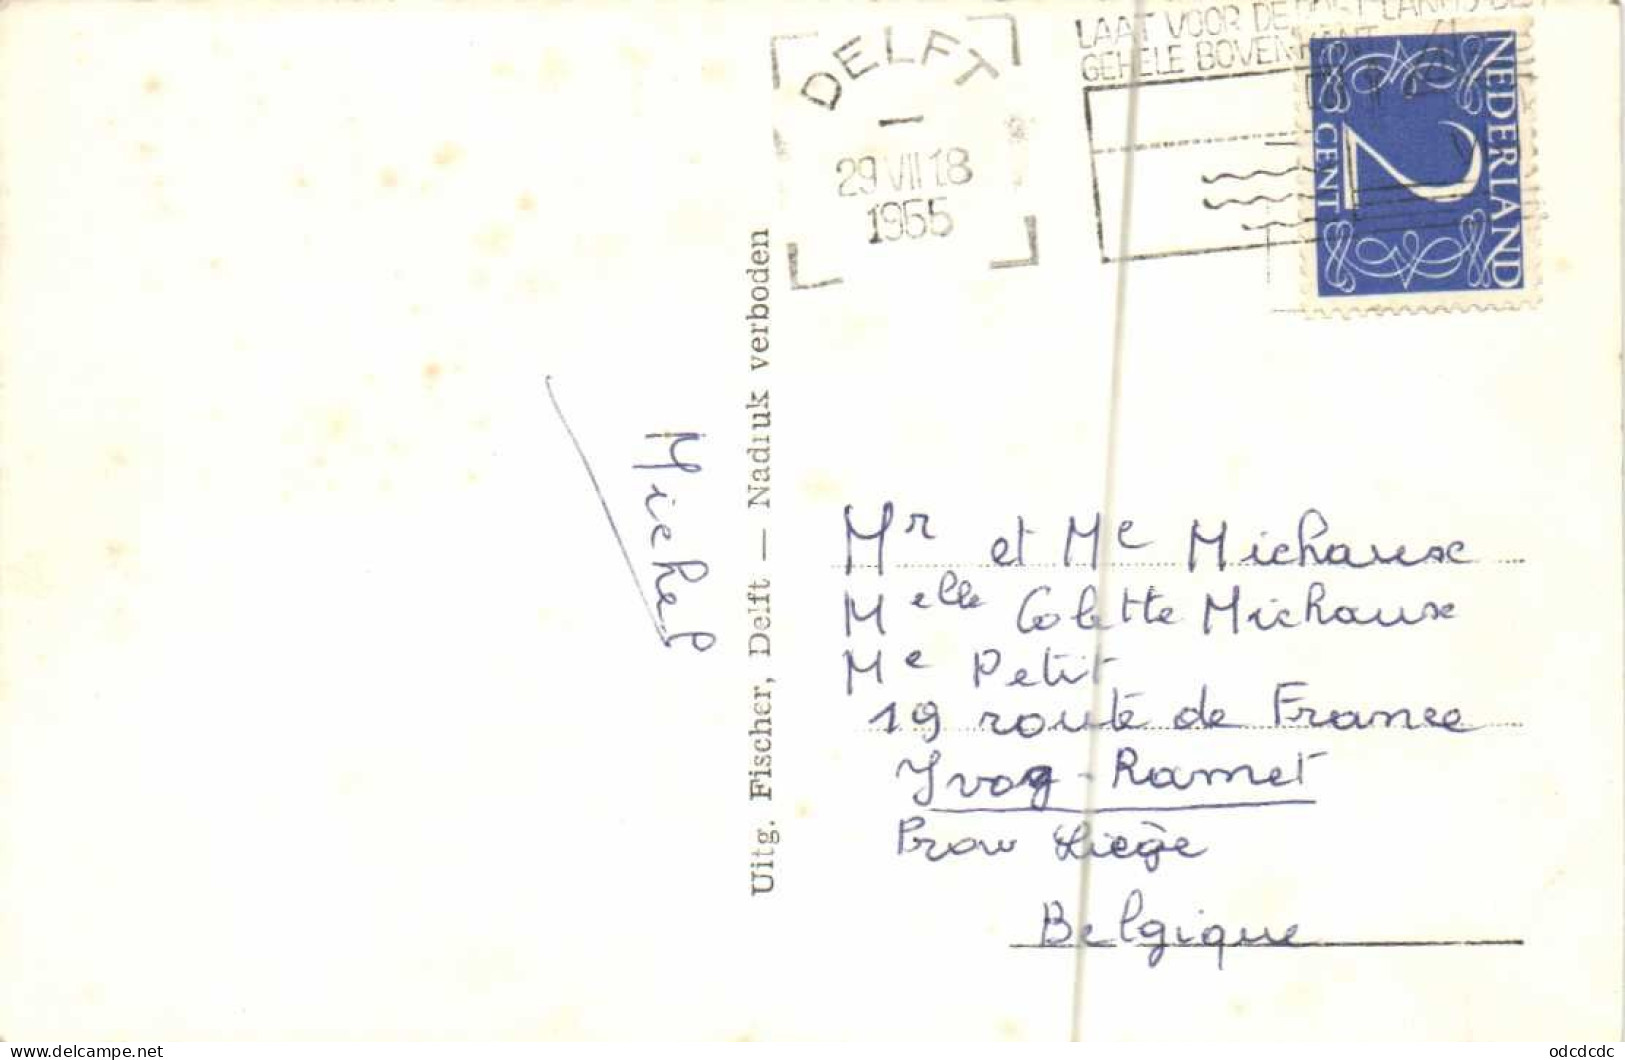 LAAT VOOR DE
GEHELE BOVENKANT
DELFT
29 VII 18
1955
NEDERLAND
2
CENT
Uitg. Fischer, Delft — Nadruk verboden
Michel
Mr et Me Michaux
Melle Colette Michaux
Me Petit
19 route de France
Yvoz-Ramet
Prov Liège
Belgique
odcdcdc